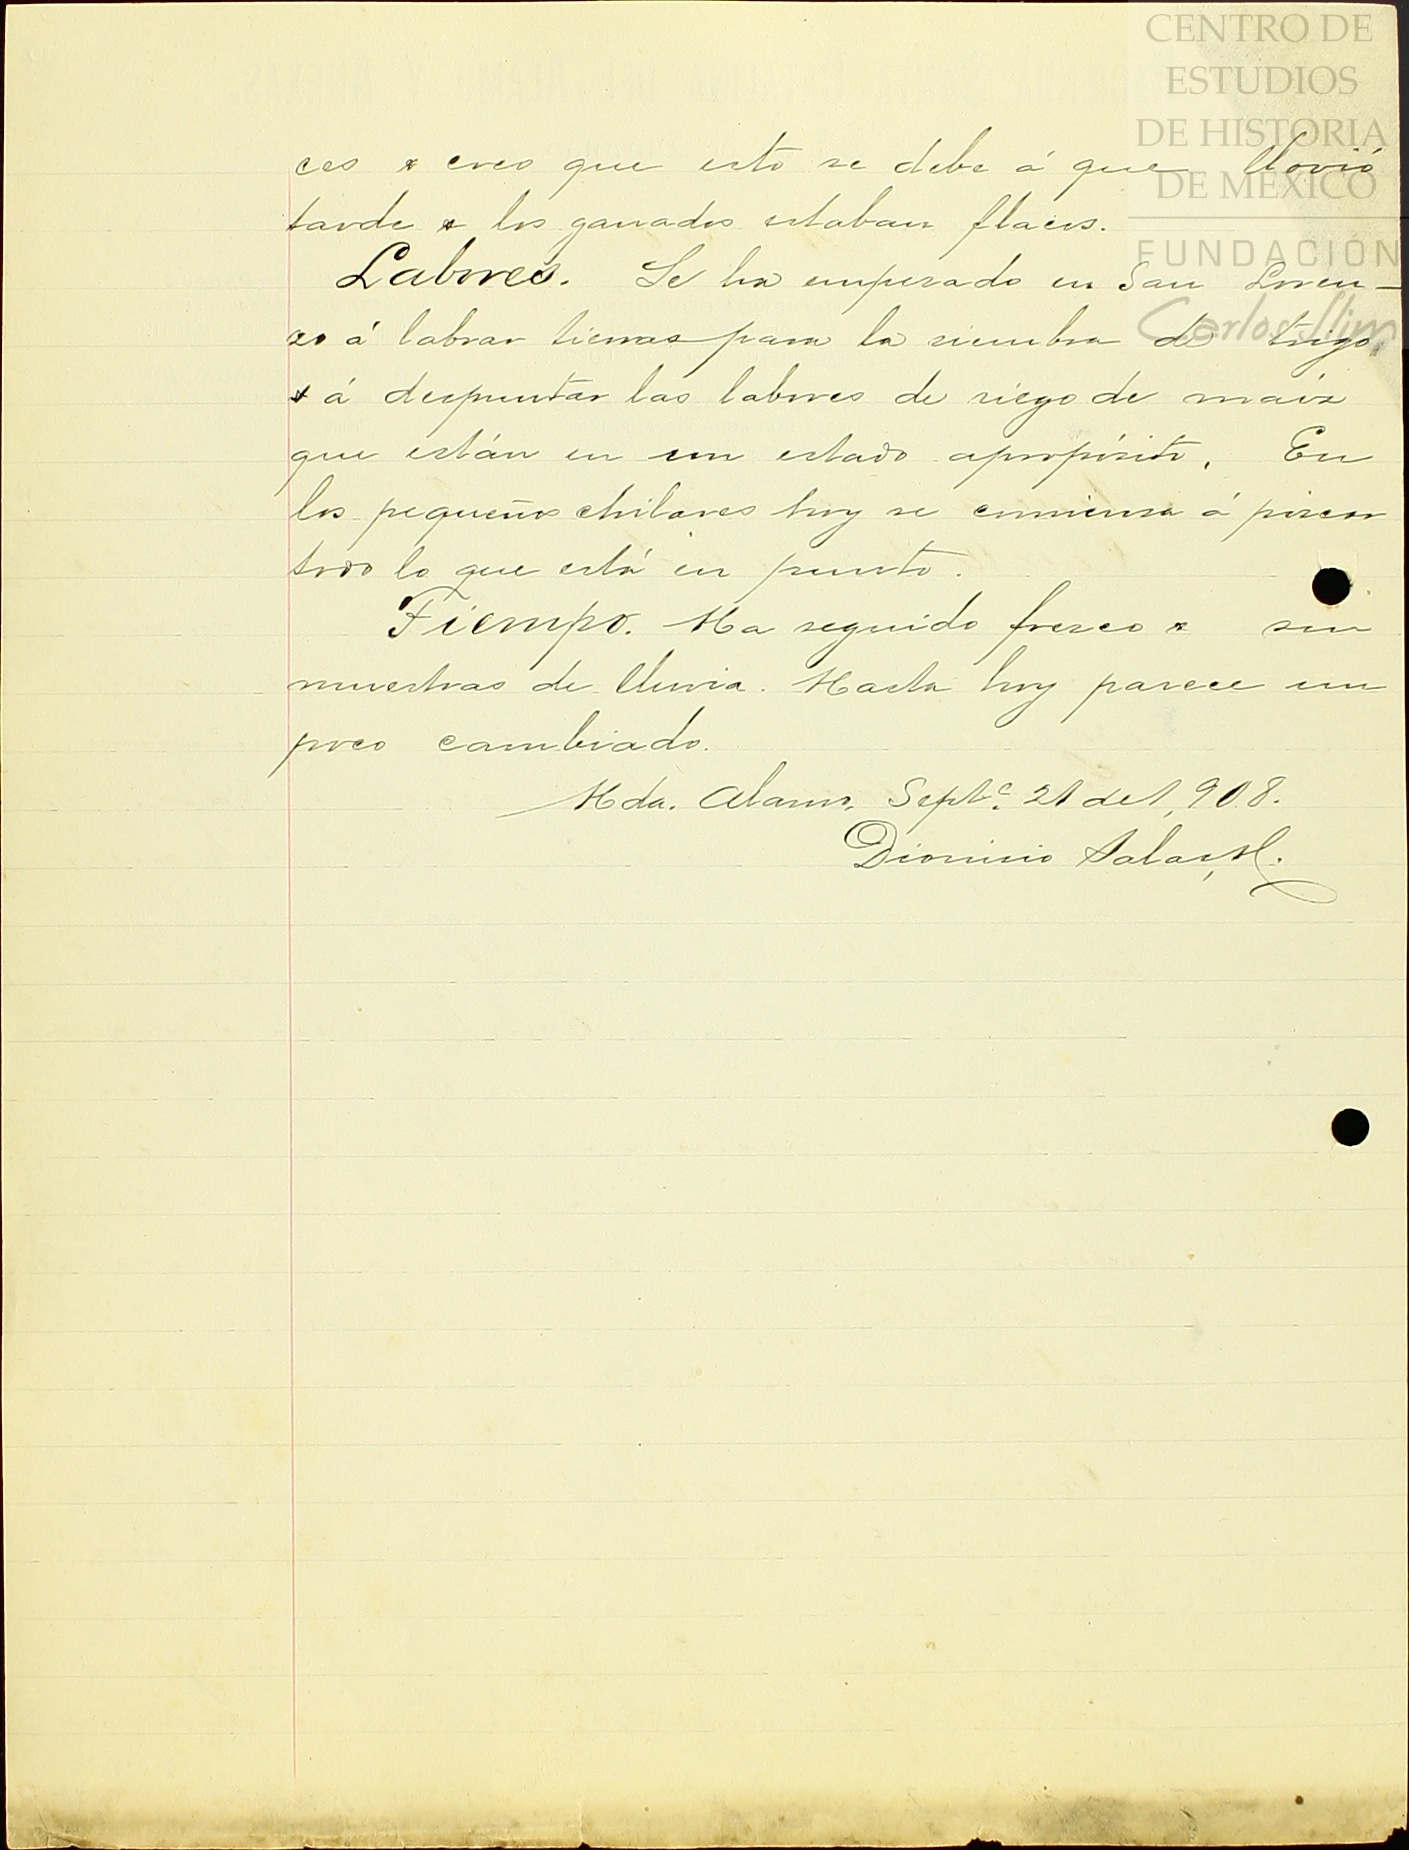 CENTRO DE
ESTUDIOS
DE HISTORIA
DE MÉXICO
FUNDACIÓN
Carlos Slim
ces & creo que esto se debe á que llovió
tarde & los ganados estaban flacos.
Labores. Se ha empesado en San Loren-
zo á labrar tierras para la siembra de trigo
& á despuntar las labores de riego de maíz
que están en un estado apropósito. En
los pequeños chilares hoy se comiensa á piscar
todo lo que está en punto.
Tiempo. Ha seguido fresco & sin
muestras de lluvia. Hasta hoy parece un
poco cambiado.
Hda. Alamo. Septe. 21 de 1,908.
Dionisio Salas, H.